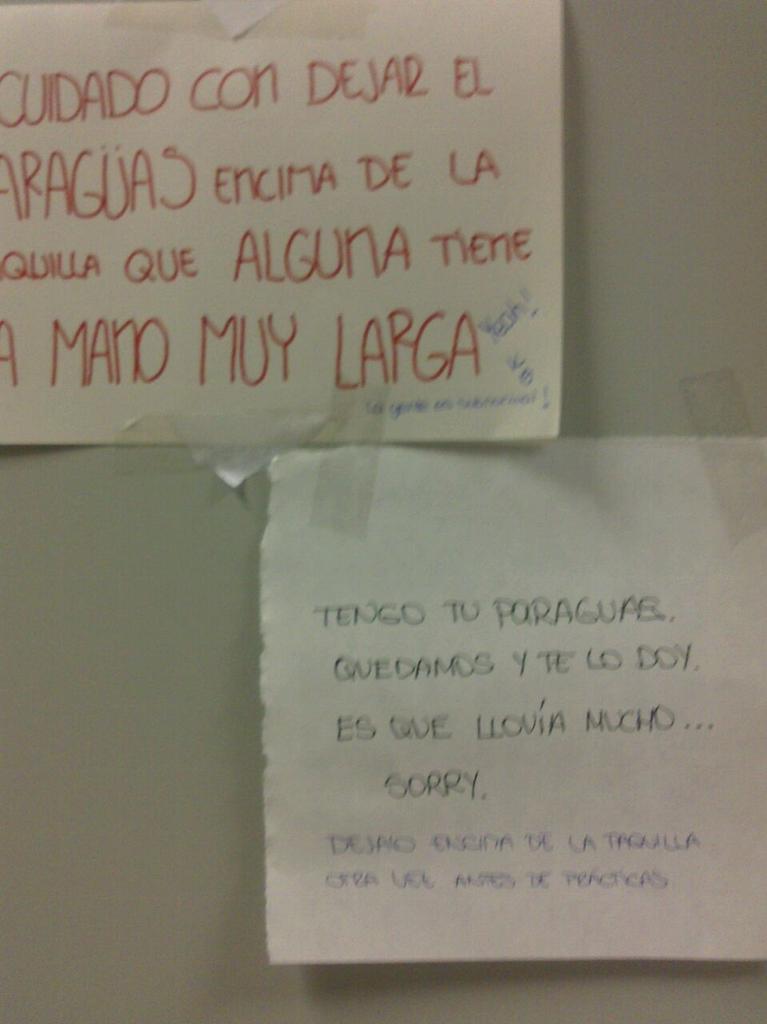 CUIDADO CON DEJAR EL
ARAGÜAS ENCIMA DE LA
QUILLA QUE ALGUNA TIENE
A MANO MUY LARGA
Yeah!
La gente es subnormal!
TENGO TU PARAGUAS.
QUEDAMOS Y TE LO DOY.
ES QUE LLOVÍA MUCHO...
SORRY.
DEJALO ENCIMA DE LA TAQUILLA
OTRA VEZ ANTES DE PRÁCTICAS